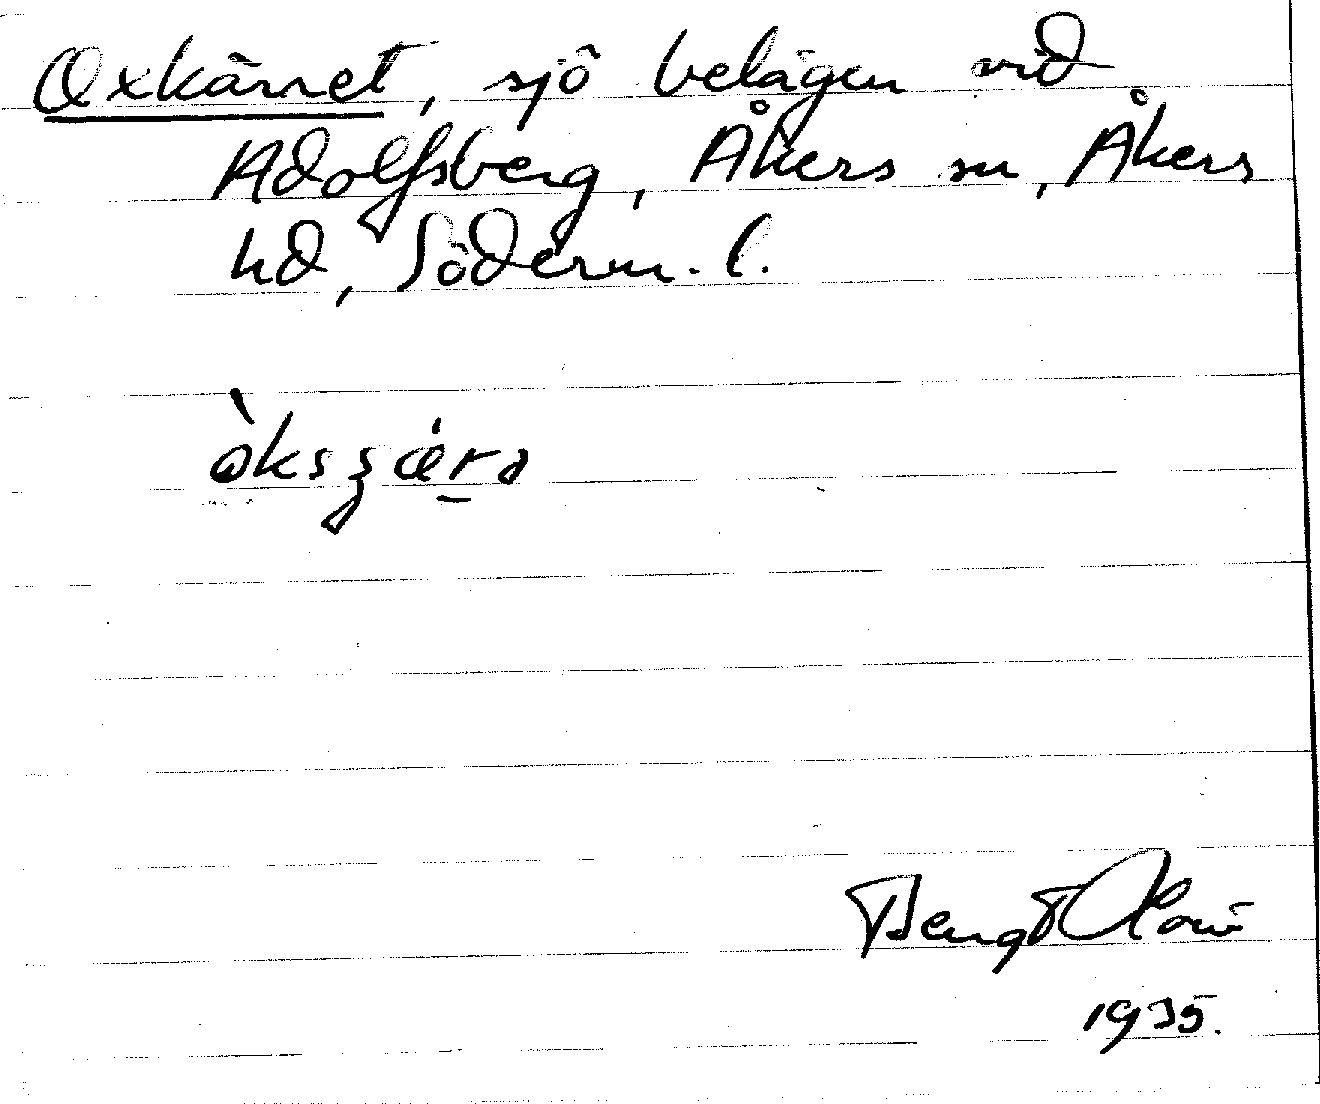 Oxkärret, sjö belägen vid
Adolfsberg, Åkers sn, Åkers
hd, Söderm. l.
Bengt
1935.